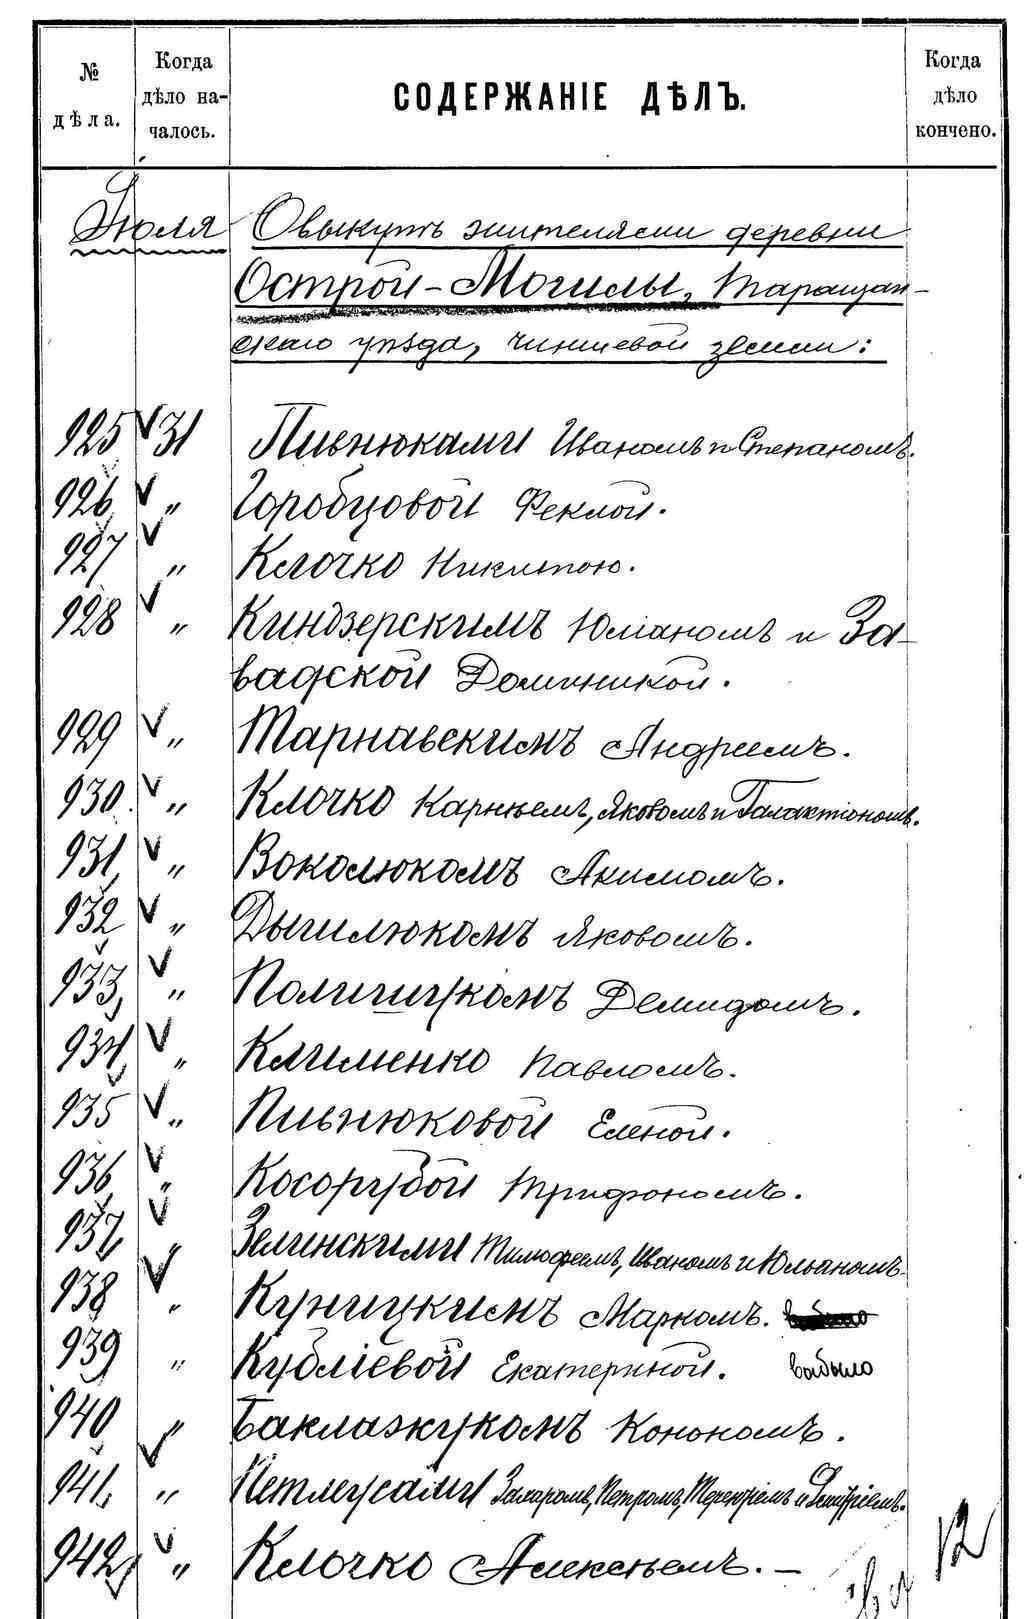 № дѣла.
Когда дѣло началось.
СОДЕРЖАНІЕ ДѢЛЪ.
Когда дѣло кончено.
Іюля О выкупѣ жителями деревни
Острой-Могилы, Таращан-
скаго уѣзда, чиншевой земли:
925 31 Пивнюками Иваномъ и Степаномъ.
926 " Горобцовой Феклой.
927 " Клочко Никитою.
928 " Киндзерскимъ Юліаномъ и За-
вадской Доминикой.
929 " Тарнавскимъ Андреемъ.
930 " Клочко Карнѣемъ, Яковомъ и Галактіономъ.
931 " Воколюкомъ Акимомъ.
932 " Дышлюкомъ Яковомъ.
933 " Полищукомъ Демидомъ.
934 " Клименко Павломъ.
935 " Пивнюковой Еленой.
936 " Косорубой Трифономъ.
937 " Зелинскими Тимофеемъ, Иваномъ и Юльяномъ
938 " Куницкимъ Маркомъ.
939 " Кубліевой Екатериной.
940 " Баклажукомъ Конономъ.
941 " Петлеусами Захаромъ, Петромъ, Терентіемъ и Дмитріемъ.
942 " Клочко Алексѣемъ. —
12